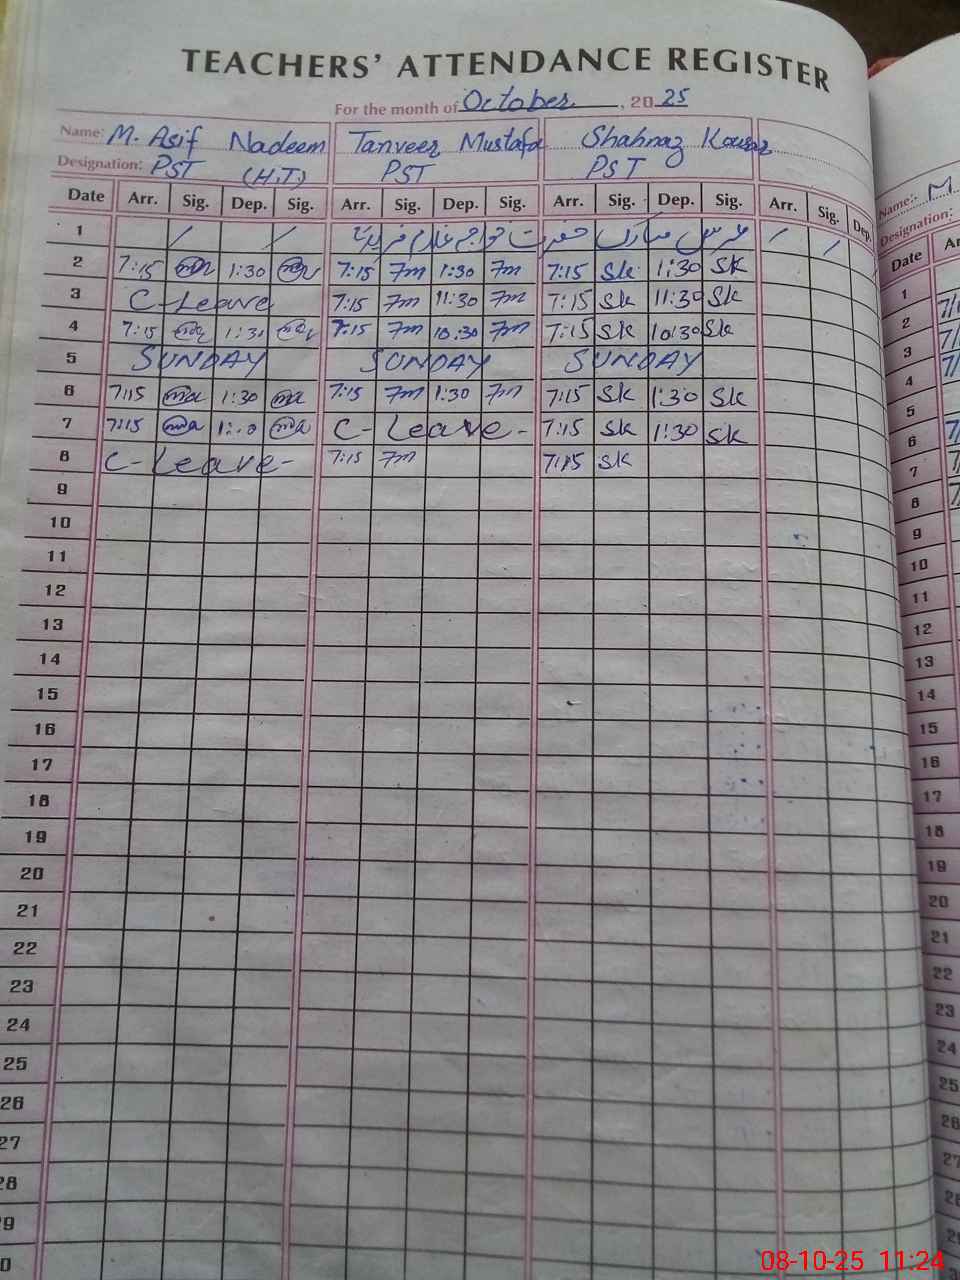 TEACHERS' ATTENDANCE REGISTER
For the month of October, 2025
Name: M. Asif Nadeem Tanveer Mustafa Shahnaz Kousar
Designation: PST (H.T) PST PST
Date Arr. Sig. Dep. Sig. Arr. Sig. Dep. Sig. Arr. Sig. Dep. Sig. Arr. Sig. Dep.
1 عرس مبارک حضرت خواجہ غلام فریدؒ
2 7:15 1:30 7:15 7m 1:30 7m 7:15 Sk 1:30 SK
3 C-Leave 7:15 7m 11:30 7m 7:15 Sk 11:30 SK
4 7:15 1:31 7:15 7m 10:30 7m 7:15 Sk 10:30 Sk
5 SUNDAY SUNDAY SUNDAY
6 7:15 ma 1:30 ma 7:15 7m 1:30 7m 7:15 SK 1:30 SK
7 7:15 ma ma C-Leave- 7:15 Sk 1:30 SK
8 C-Leave- 7:15 7m 7:15 SK
9
10
11
12
13
14
15
16
17
18
19
20
21
22
23
24
25
26
27
28
29
Name:- M
Designation:
Date
1
2
3
4
5
6
7
8
9
10
11
12
13
14
15
16
17
18
19
20
21
22
23
24
25
26
27
28
08-10-25 11:24